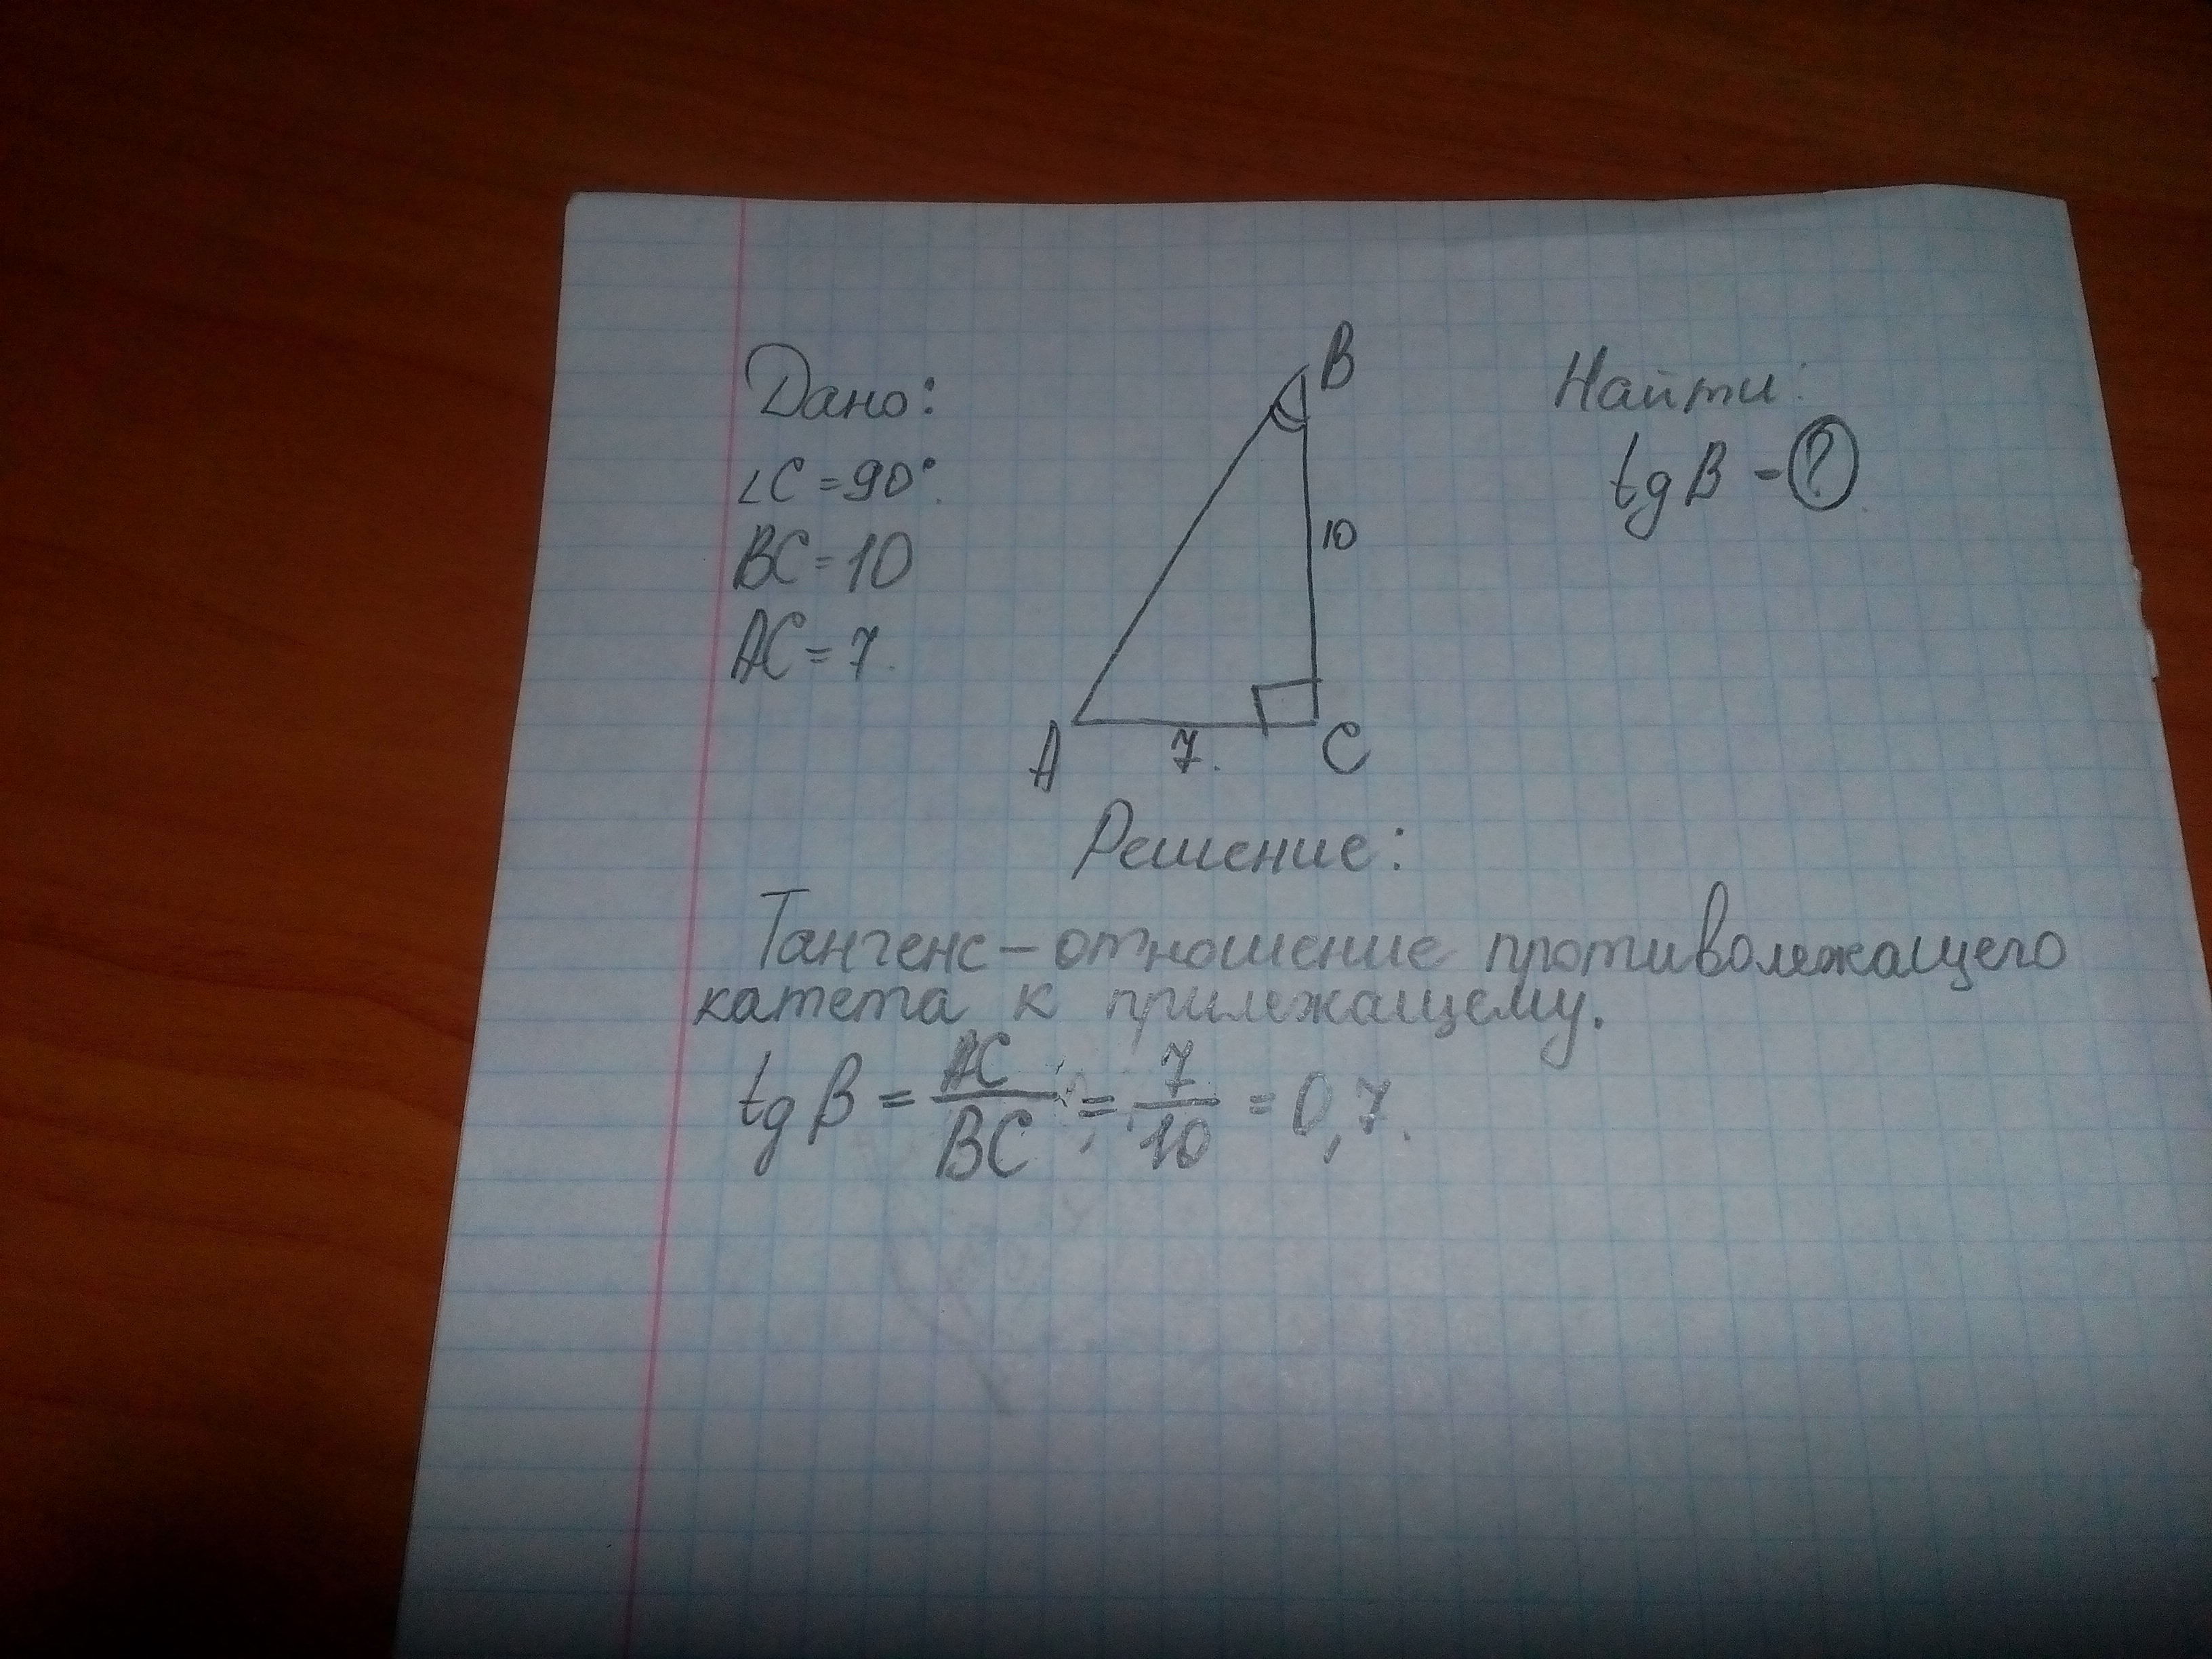 Дано:
∠C = 90°.
BC = 10
AC = 7.
B
10
A
7.
C
Найти:
tg B - ?
Решение:
Тангенс – отношение противолежащего
катета к прилежащему.
tg B = AC/BC = 7/10 = 0,7.